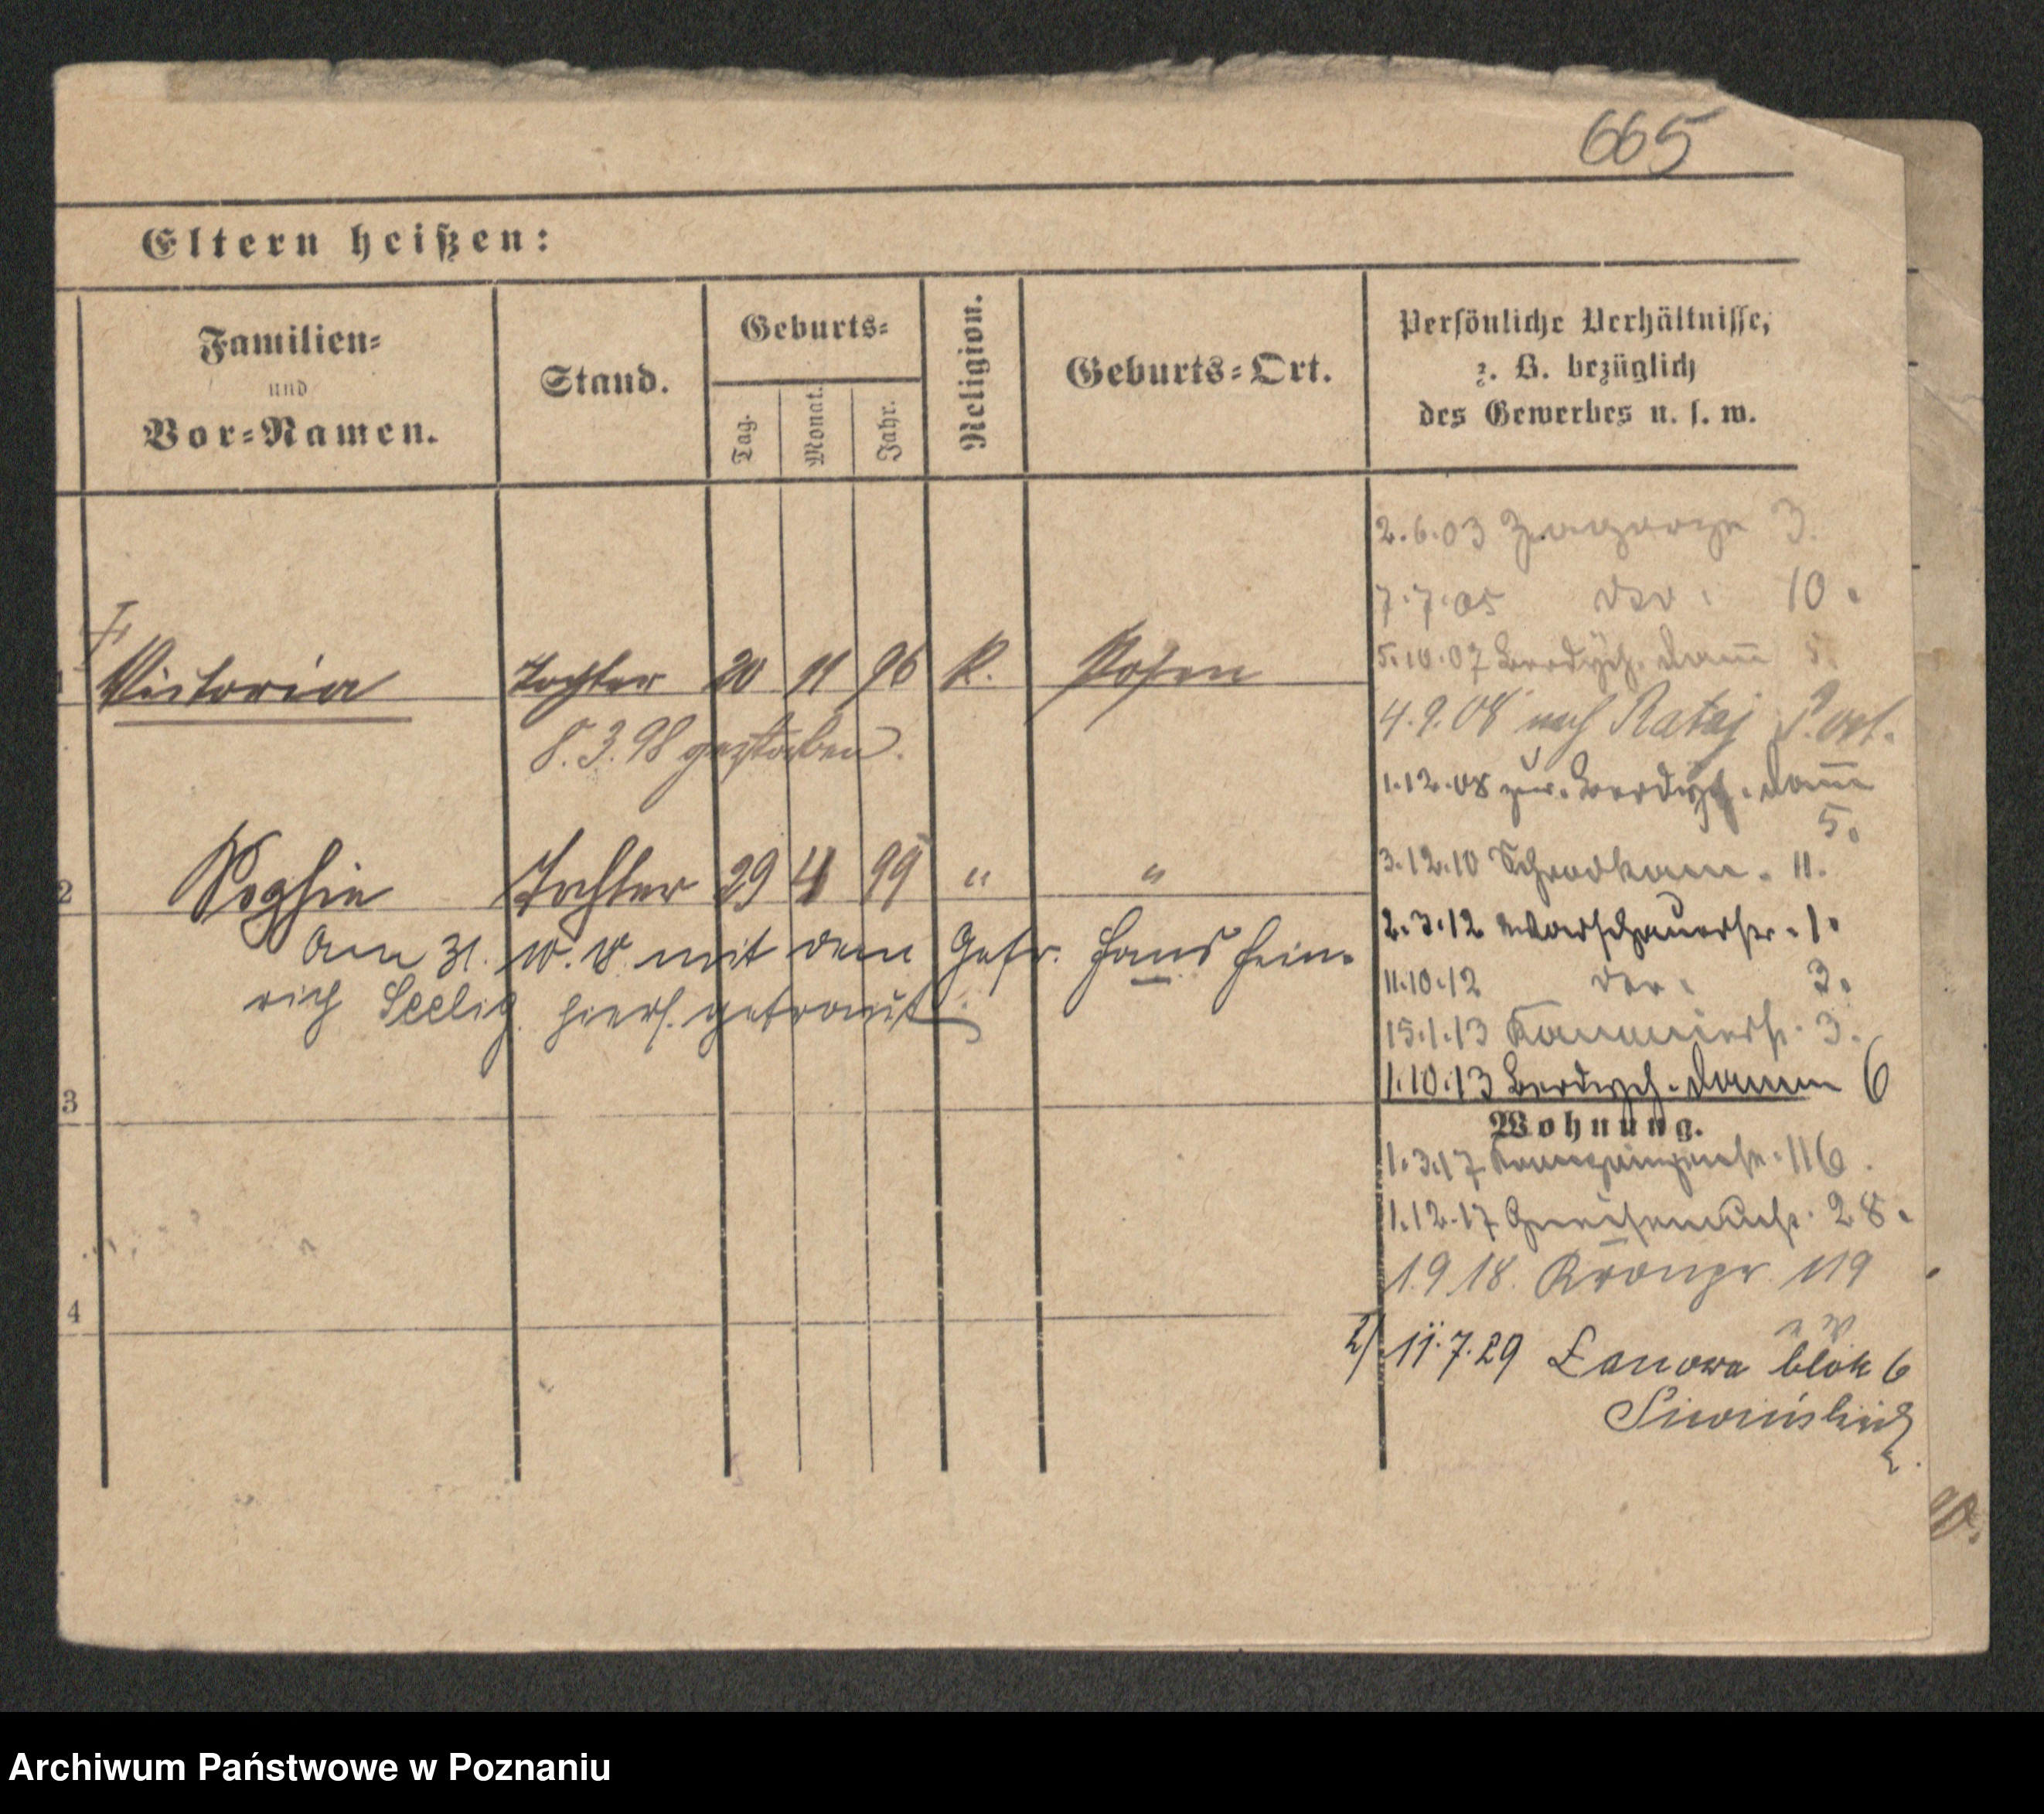 665
Eltern heißen:
Familien-
und
Vor-Namen.
Stand.
Geburts-
Tag.
Monat.
Jahr.
Religion.
Geburts-Ort.
Persönliche Verhältnisse,
z. B. bezüglich
des Gewerbes u. s. w.
2.6.03 Zagorze 3.
7.7.05 der. 10.
5.10.07 Berdych. Dam̅ 5.
1 Victoria Tochter 20 11 96 K. Posen
8.3.98 gestorben.
4.9.08 nach Rataj
1.12.08 zur. Berdych. Dam̅
5.
2 Sophie Tochter 29 4 99 " "
3.12.10 11.
am 31. 10. 18. mit dem Gefr. Hans Hein-
rich Seelig. hiers. getraut.
2.3.12 Warschauerstr. 1.
11.10.12 der. 3.
15.1.13 3.
1.10.13 Berdych. Damm 6
3
Wohnung.
1.3.17. 116.
1.12.17. Gneisenaustr. 28.
1.9.18. Kronpr. 119
4
2) 11.7.29 Łanowa blok 6